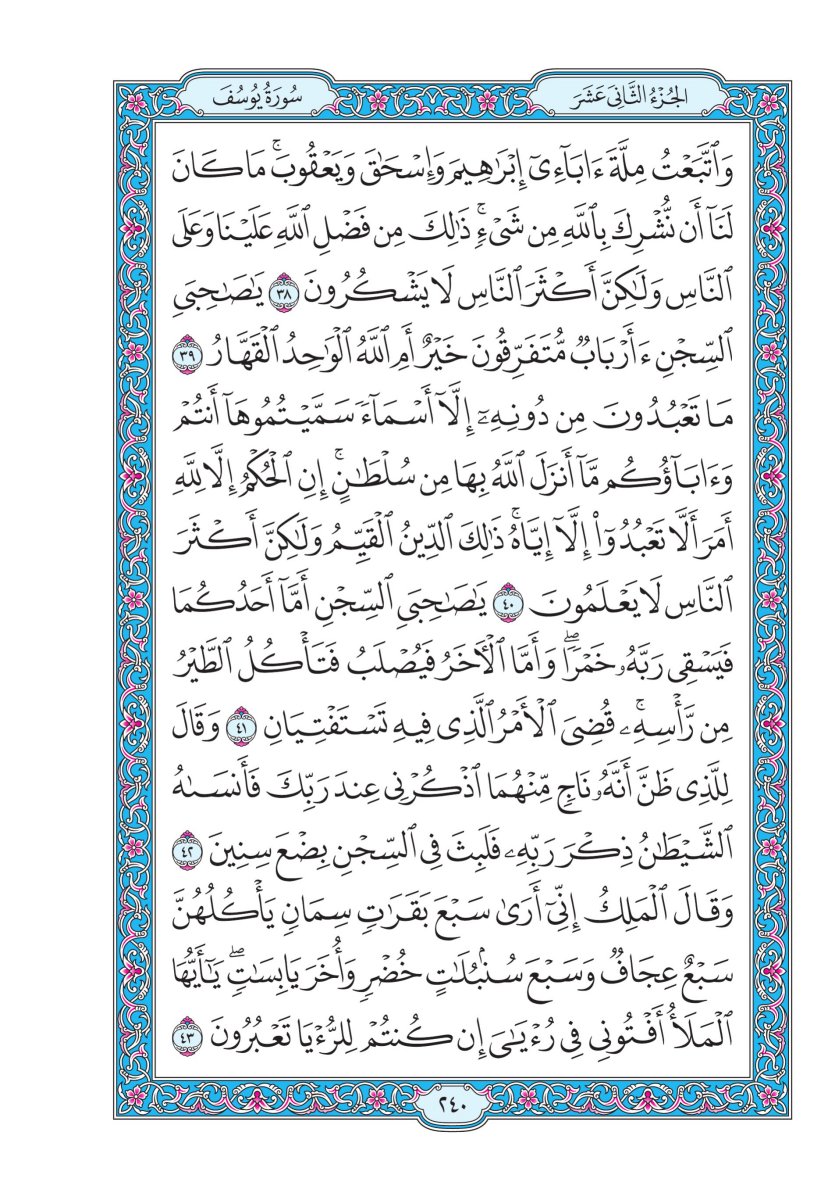 الجُزْءُ الثَّانِيَ عَشَرَ
سُورَةُ يُوسُفَ
وَٱتَّبَعْتُ مِلَّةَ ءَابَآءِىٓ إِبْرَٰهِيمَ وَإِسْحَٰقَ وَيَعْقُوبَۚ مَا كَانَ
لَنَآ أَن نُّشْرِكَ بِٱللَّهِ مِن شَىْءٍۚ ذَٰلِكَ مِن فَضْلِ ٱللَّهِ عَلَيْنَا وَعَلَى
ٱلنَّاسِ وَلَٰكِنَّ أَكْثَرَ ٱلنَّاسِ لَا يَشْكُرُونَ ٣٨ يَٰصَٰحِبَىِ
ٱلسِّجْنِ ءَأَرْبَابٌ مُّتَفَرِّقُونَ خَيْرٌ أَمِ ٱللَّهُ ٱلْوَٰحِدُ ٱلْقَهَّارُ ٣٩
مَا تَعْبُدُونَ مِن دُونِهِۦٓ إِلَّآ أَسْمَآءً سَمَّيْتُمُوهَآ أَنتُمْ
وَءَابَآؤُكُم مَّآ أَنزَلَ ٱللَّهُ بِهَا مِن سُلْطَٰنٍۚ إِنِ ٱلْحُكْمُ إِلَّا لِلَّهِ
أَمَرَ أَلَّا تَعْبُدُوٓا۟ إِلَّآ إِيَّاهُۚ ذَٰلِكَ ٱلدِّينُ ٱلْقَيِّمُ وَلَٰكِنَّ أَكْثَرَ
ٱلنَّاسِ لَا يَعْلَمُونَ ٤٠ يَٰصَٰحِبَىِ ٱلسِّجْنِ أَمَّآ أَحَدُكُمَا
فَيَسْقِى رَبَّهُۥ خَمْرًاۖ وَأَمَّا ٱلْءَاخَرُ فَيُصْلَبُ فَتَأْكُلُ ٱلطَّيْرُ
مِن رَّأْسِهِۦۚ قُضِىَ ٱلْأَمْرُ ٱلَّذِى فِيهِ تَسْتَفْتِيَانِ ٤١ وَقَالَ
لِلَّذِى ظَنَّ أَنَّهُۥ نَاجٍ مِّنْهُمَا ٱذْكُرْنِى عِندَ رَبِّكَ فَأَنسَىٰهُ
ٱلشَّيْطَٰنُ ذِكْرَ رَبِّهِۦ فَلَبِثَ فِى ٱلسِّجْنِ بِضْعَ سِنِينَ ٤٢
وَقَالَ ٱلْمَلِكُ إِنِّىٓ أَرَىٰ سَبْعَ بَقَرَٰتٍ سِمَانٍ يَأْكُلُهُنَّ
سَبْعٌ عِجَافٌ وَسَبْعَ سُنۢبُلَٰتٍ خُضْرٍ وَأُخَرَ يَابِسَٰتٍۖ يَٰٓأَيُّهَا
ٱلْمَلَأُ أَفْتُونِى فِى رُءْيَٰىَ إِن كُنتُمْ لِلرُّءْيَا تَعْبُرُونَ ٤٣
٢٤٠